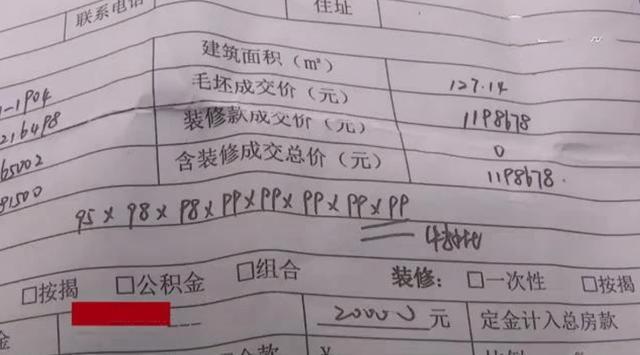 联系电话 住址
建筑面积（㎡） 127.14
-1904 毛坯成交价（元） 1198678
216498 装修款成交价（元） 0
65002 含装修成交总价（元） 1198678.
81500
95×98×98×99×99×99×99×99
□按揭 □公积金 □组合 装修：□一次性 □按揭
金 20000元 定金计入总房款
¥